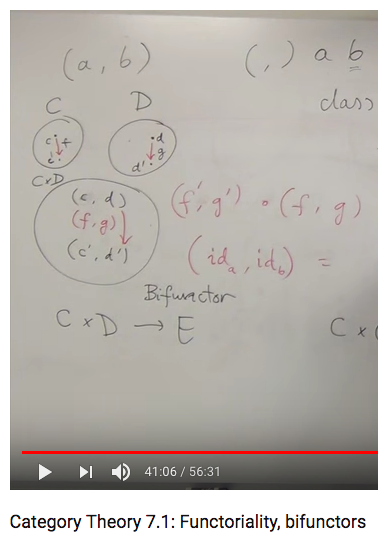 (a, b) (,) a b
class
C D
c f c' d g d'
C×D
(c, d)
(f, g)
(c', d')
(f', g') ∘ (f, g)
(id_a, id_b) =
Bifunctor
C × D → E C ×
41:06 / 56:31
Category Theory 7.1: Functoriality, bifunctors